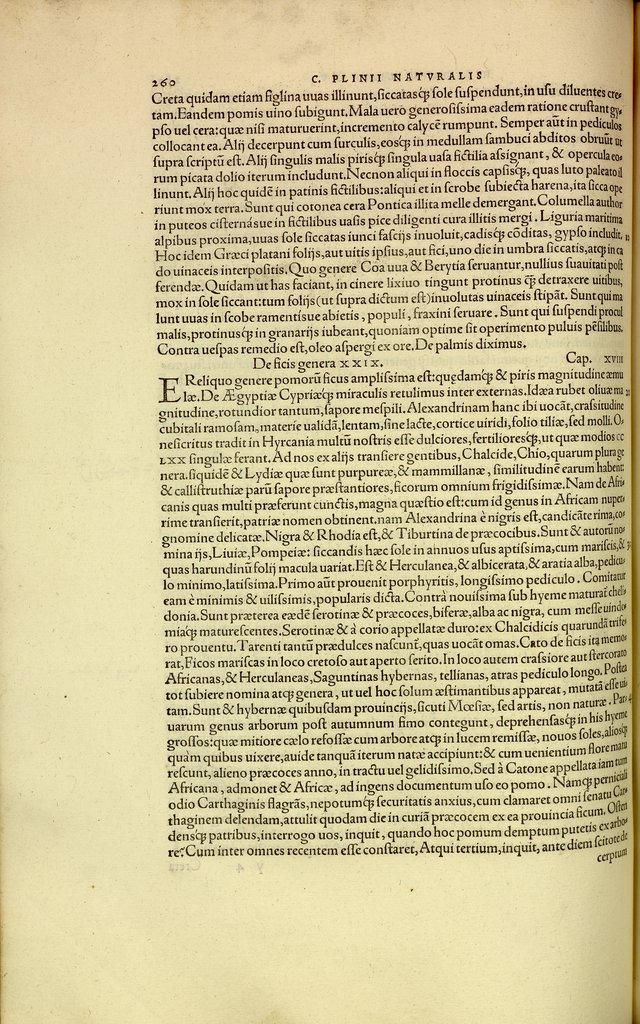 260
C. PLINII NATVRALIS
Creta quidam etiam figlina uuas illinunt, siccatasq́; sole suspendunt, in usu diluentes cre-
tam. Eandem pomis uino subigunt. Mala uero generosissima eadem ratione crustant gy-
pso uel cera: quæ nisi maturuerint, incremento calycē rumpunt. Semper aūt in pediculos
collocant ea. Alij decerpunt cum surculis, eosq́; in medullam sambuci abditos obruūt ut
supra scriptū est. Alij singulis malis pirisq́; singula uasa fictilia assignant, & opercula eo-
rum picata dolio iterum includunt. Necnon aliqui in floccis capsisq́;, quas luto paleato il
linunt. Alij hoc quidē in patinis fictilibus: aliqui et in scrobe subiecta harena, ita sicca ope
riunt mox terra. Sunt qui cotonea cera Pontica illita melle demergant. Columella author
in puteos cisternásue in fictilibus uasis pice diligenti cura illitis mergi. Liguria maritima
alpibus proxima, uuas sole siccatas iunci fascijs inuoluit, cadisq́; cōditas, gypso includit.
Hoc idem Græci platani folijs, aut uitis ipsius, aut fici, uno die in umbra siccatis, atq́; in ca
do uinaceis interpositis. Quo genere Coa uua & Berytia seruantur, nullius suauitati post
ferendæ. Quidam ut has faciant, in cinere lixiuo tingunt protinus q̄; detraxere uitibus,
mox in sole siccant: tum folijs (ut supra dictum est) inuolutas uinaceis stipāt. Sunt qui ma
lunt uuas in scobe ramentisue abietis, populi, fraxini seruare. Sunt qui suspendi procul
malis, protinusq́; in granarijs iubeant, quoniam optime sit operimento puluis pēsilibus.
Contra uespas remedio est, oleo aspergi ex ore. De palmis diximus.
De ficis genera XXIX. Cap. xviii
E Reliquo genere pomorū ficus amplissima est: quędamq́; & piris magnitudine æmu
læ. De Ægyptiæ Cypriæq́; miraculis retulimus inter externas. Idæa rubet oliuæ ma
gnitudine, rotundior tantum, sapore mespili. Alexandrinam hanc ibi uocāt, crassitudine
cubitali ramosam, materie ualidā, lentam, sine lacte, cortice uiridi, folio tiliæ, sed molli. O-
nesicritus tradit in Hyrcania multū nostris esse dulciores, fertilioresq́;, ut quæ modios cc
LXX singulæ ferant. Ad nos ex alijs transiere gentibus, Chalcide, Chio, quarum plura ge
nera. siquidē & Lydiæ quæ sunt purpureæ, & mammillanæ, similitudinē earum habent:
& callistruthiæ parū sapore præstantiores, ficorum omnium frigidissimæ. Nam de Afri-
canis quas multi præferunt cunctis, magna quæstio est: cum id genus in Africam nuper-
rime transierit, patriæ nomen obtinent. nam Alexandrina è nigris est, candicāte rima, co-
gnomine delicatæ. Nigra & Rhodia est, & Tiburtina de præcocibus. Sunt & autorū no-
mina ijs, Liuiæ, Pompeiæ: siccandis hæc sole in annuos usus aptissima, cum mariscis, &
quas harundinū folij macula uariat. Est & Herculanea, & albicerata, & aratia alba, pedicu-
lo minimo, latissima. Primo aūt prouenit porphyritis, longissimo pediculo. Comitatur
eam è minimis & uilissimis, popularis dicta. Contrà nouissima sub hyeme maturat̄ cheli-
donia. Sunt præterea eædē serotinæ & præcoces, biferæ, alba ac nigra, cum messe uinde-
miaq́; maturescentes. Serotinæ & à corio appellatæ duro: ex Chalcidicis quarundā trife-
ro prouentu. Tarenti tantū prædulces nascunt̄, quas uocāt omas. Cato de ficis ita memo-
rat, Ficos mariscas in loco cretoso aut aperto serito. In loco autem crassiore aut stercorato
Africanas, & Herculaneas, Saguntinas hybernas, tellianas, atras pediculo longo. Postea
tot subiere nomina atq́; genera, ut uel hoc solum æstimantibus appareat, mutatā esse ui-
tam. Sunt & hybernæ quibusdam prouincijs, sicuti Mœsiæ, sed artis, non naturæ. Par-
uarum genus arborum post autumnum fimo contegunt, deprehensasq́; in his hyeme
grossos: quæ mitiore cælo refossæ cum arbore atq́; in lucem remissæ, nouos soles, aliosq́;
quàm quibus uixere, auide tanquā iterum natæ accipiunt: & cum uenientium flore matu
rescunt, alieno præcoces anno, in tractu uel gelidissimo. Sed à Catone appellata iam tum
Africana, admonet & Africæ, ad ingens documentum uso eo pomo. Namq́; perniciali
odio Carthaginis flagrās, nepotumq́; securitatis anxius, cum clamaret omni senatu Car-
thaginem delendam, attulit quodam die in curiā præcocem ex ea prouincia ficum. Osten
densq́; patribus, interrogo uos, inquit, quando hoc pomum demptum putetis ex arbo-
re? Cum inter omnes recentem esse constaret, Atqui tertium, inquit, ante diem scitote de
cerptum